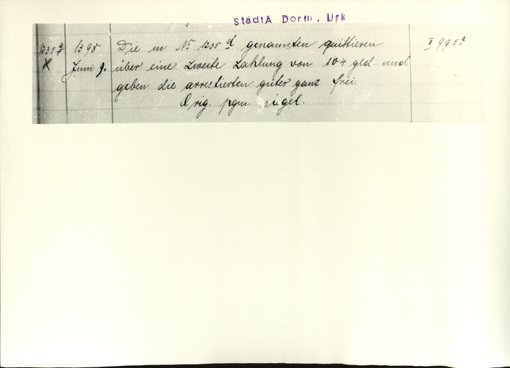 StadtA Dortm., Urk
1395 Die in No 1305 d genannten quittieren
X Juni 9. über eine zweite Zahlung von 104 gld und
geben die arrestierten güter ganz frei.
Orig. pgm. sigel.